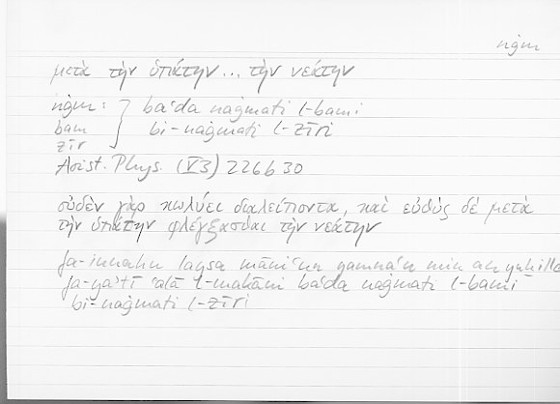 nġm
μετὰ τὴν ὑπάτην... τὴν νεάτην
nġm: } baʿda naġmati l-bami
bam bi-naġmati l-zīri
zīr
Arist. Phys. (V3) 226b30
οὐδὲν γὰρ κωλύει διαλείποντα, καὶ εὐθὺς δὲ μετὰ
τὴν ὑπάτην φθέγξασθαι τὴν νεάτην
fa-innahu laysa māniʿun yamnaʿu min an yuḫilla
fa-yaʾtī ʿalā l-makāni baʿda naġmati l-bami
bi-naġmati l-zīri